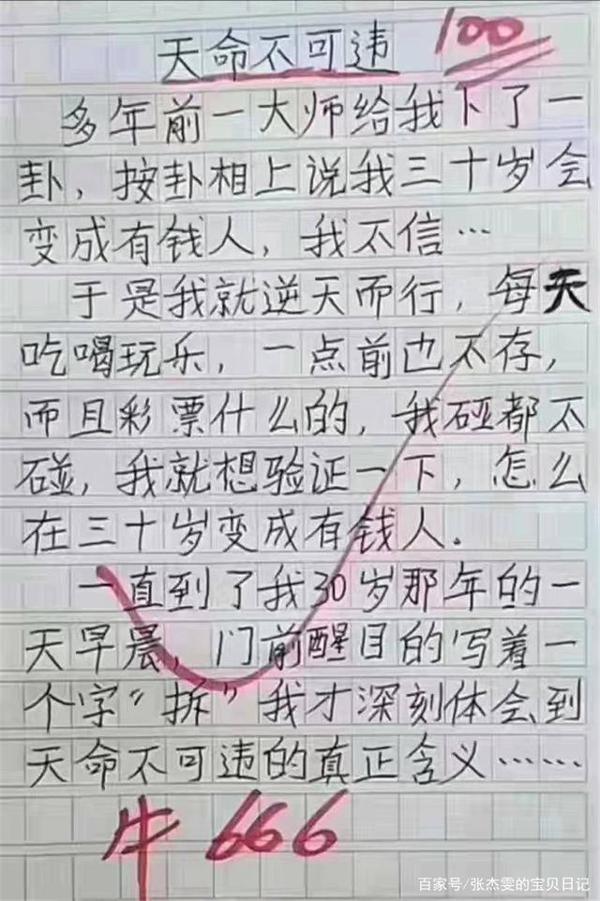 天命不可违 100
多年前一大师给我下了一
卦，按卦相上说我三十岁会
变成有钱人，我不信…
于是我就逆天而行，每天
吃喝玩乐，一点前也不存，
而且彩票什么的，我碰都不
碰，我就想验证一下，怎么
在三十岁变成有钱人。
一直到了我30岁那年的一
天早晨，门前醒目的写着一
个字“拆”我才深刻体会到
天命不可违的真正含义……
牛 666
百家号/张杰雯的宝贝日记